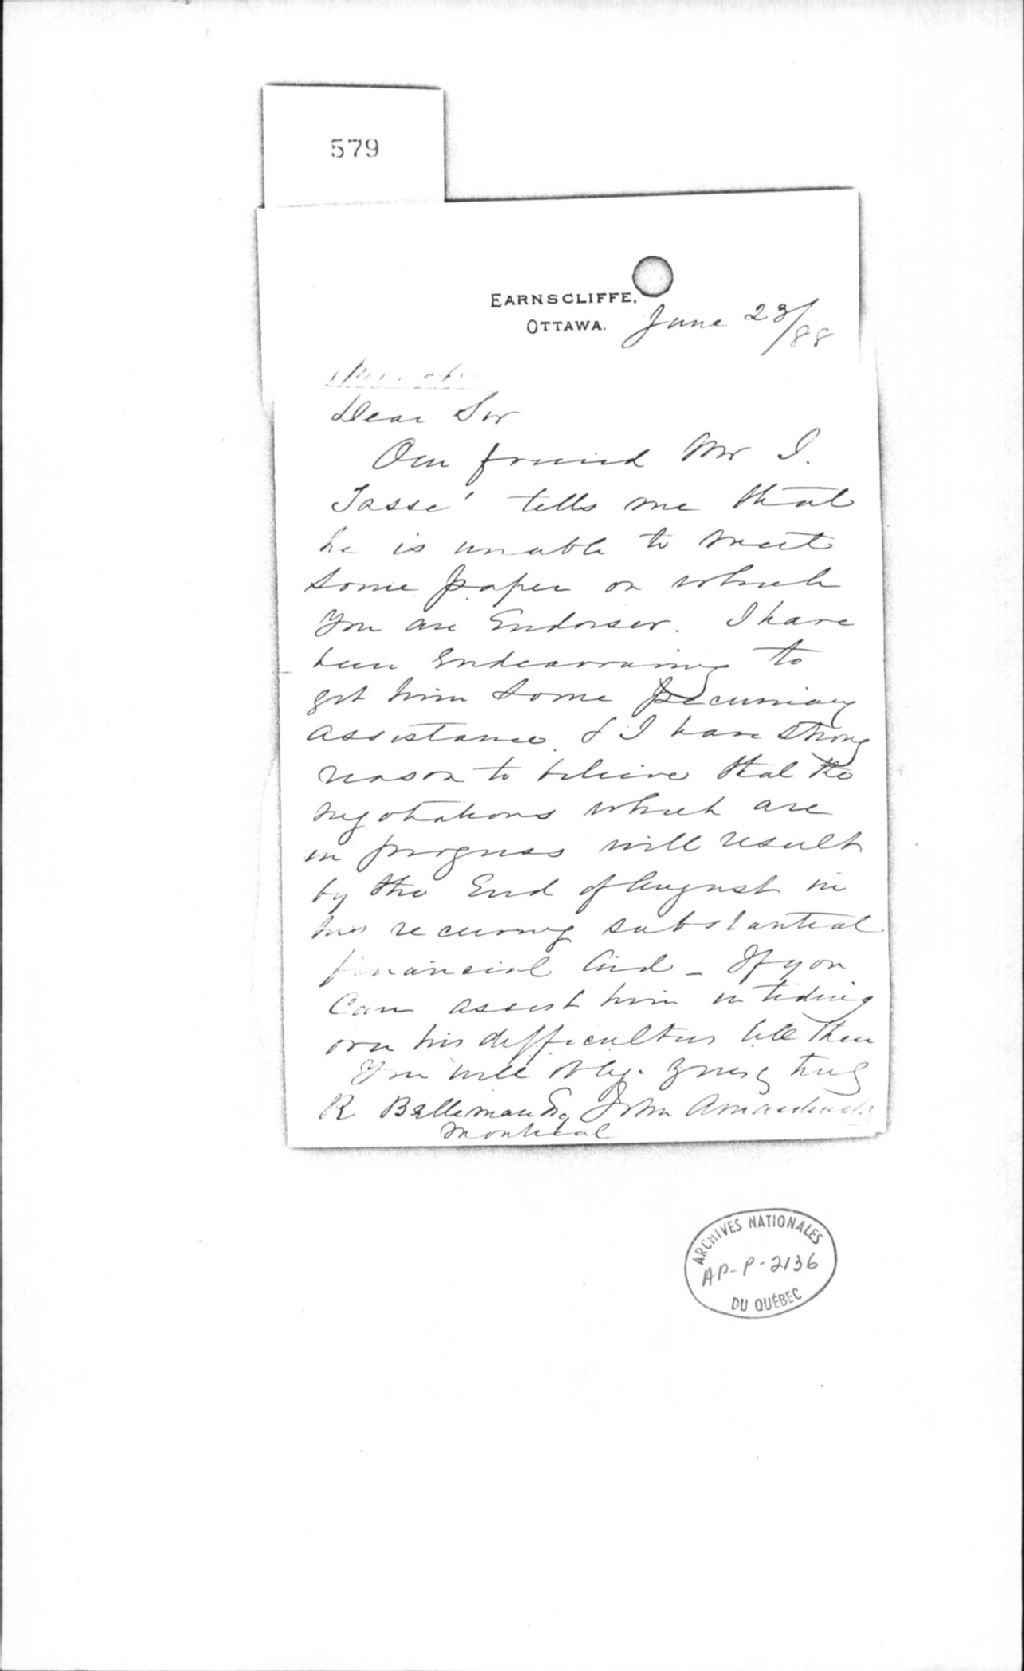 579
EARNSCLIFFE,
OTTAWA. June 23/88
Dear Sir
Our friend Mr J.
Tassé tells me that
he is unable to meet
some paper on which
you are Endorser. I have
been Endeavouring to
get him some pecuniary
assistance & I have strong
reason to believe that the
negotiations which are
in progress will result
by the End of August in
his receiving substantial
financial Aid _ If you
Can assist him in tiding
over his difficulties till then
You will oblige. Yours truly
R Esq John A Macdonald
Montreal
ARCHIVES NATIONALES
AP-P-2136
DU QUÉBEC